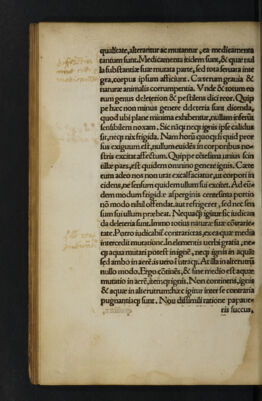 qualitate, alterantur ac mutantur, ea medicamenta
tantum sunt. Medicamenta itidem sunt, & quæ nul
la substantiæ suæ mutata parte, sed tota seruata inte
gra, corpus ipsum afficiunt. Cæterum grauia &
naturæ animalis corrumpentia. Vnde & totum eo
rum genus deleterion & pestilens dici reor. Quip
pe hæc non minus genere deleteria sunt dicenda,
quod ubi plane minima exhibentur, nullam inferūt
sensibilem noxam. Sic nāq; nec ignis ipse calidus
sit, neq; nix frigida. Nam horū quoq; si quid pror
sus exiguum est, nullum euidēs in corporibus no-
stris excitat affectum. Quippe cētesima unius scin
tillæ pars, est quidem omnino genere ignis. Cæte
rum adeo nos non urat excalfaciatue, ut corpori in
cidens, ne sensum quidem ullum sui excitet. Ad eūn
dem modum frigidæ asperginis centesima portio
nō modo nihil offendat, aut refrigeret, sed nec sen
sum sui ullum præbeat. Nequaq̄ igitur sic iudican
da deleteria sunt. Immo totius naturæ cōtrarietate
Porro iudicabit̄ contrarietas, ex ea quæ media
intercedit mutatione. In elementis uerbi gratia, ne-
q; aqua mutari potest in ignē, neq; ignis in aquā,
sed ambo in aerē, is uero ī utraq;. At illa in alterutrū
nullo modo. Ergo cōtinēs, & sine medio est aquæ
mutatio in aerē, item q; ignis. Non continens, ignis
& aquæ in alterutrum. hæc igitur inter se contraria
pugnantiaq; sunt. Nō dissimili ratione papaue-
ris succus,